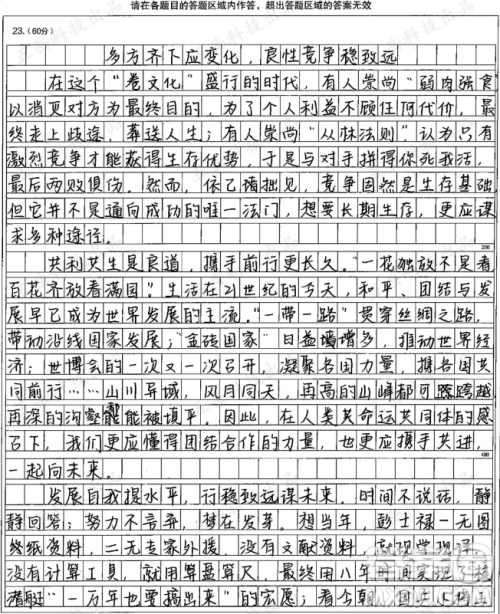 请在各题目的答题区域内作答，超出答题区域的答案无效
23.(60分)
多方齐下应变化，良性竞争稳致远
在这个“卷文化”盛行的时代，有人崇尚“弱肉强食”
以消灭对方为最终目的，为了个人利益不顾任何代价，最
终走上歧途，葬送人生；有人崇尚“丛林法则”认为只有
激烈竞争才能获得生存优势，于是与对手拼得你死我活，
最后两败俱伤。然而，依己确拙见，竞争固然是生存基础
但它并不是通向成功的唯一法门，想要长期生存，更应谋
求多种途径。
200
共利共生是良道，携手前行更长久。“一花独放不是春
百花齐放春满园”。生活在21世纪的今天，和平、团结与发
展早已成为世界发展的主流。“一带一路”贯穿丝绸之路，
带动沿线国家发展；“金砖国家”日益增多，推动世界经
济；世博会的一次又一次召开，凝聚各国力量，携各国共
同前行……山川异域，风月同天，再高的山峰都可跨越
再深的沟壑都能被填平。因此，在人类命运共同体的感
召下，我们更应懂得团结合作的力量，也更应携手共进，
400
一起向未来。
发展自我提水平，行稳致远谋未来。时间不说话，静
静回答；努力不言弃，梦在发芽。想当年，彭士禄一无图
终纸资料，二无专家外援，没有文献资料，
没有计算工具，就用算盘算尺，最终用八年时间实现
潜艇“一万年也要搞出来”的宏愿；看今朝，